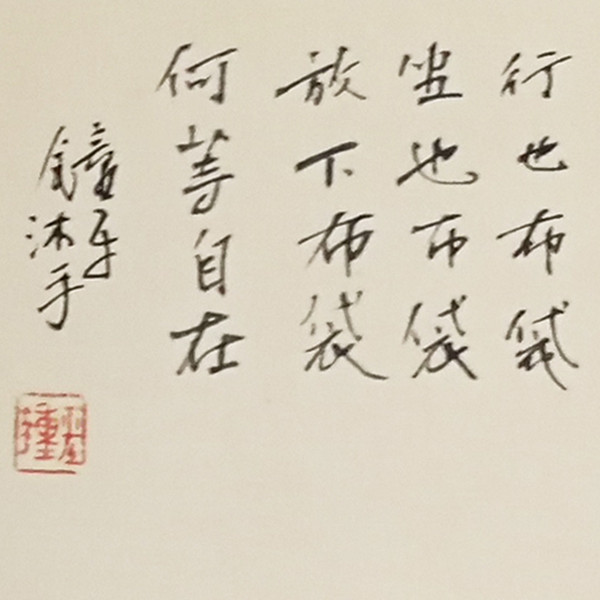 行也布袋
坐也布袋
放下布袋
何等自在
沐手